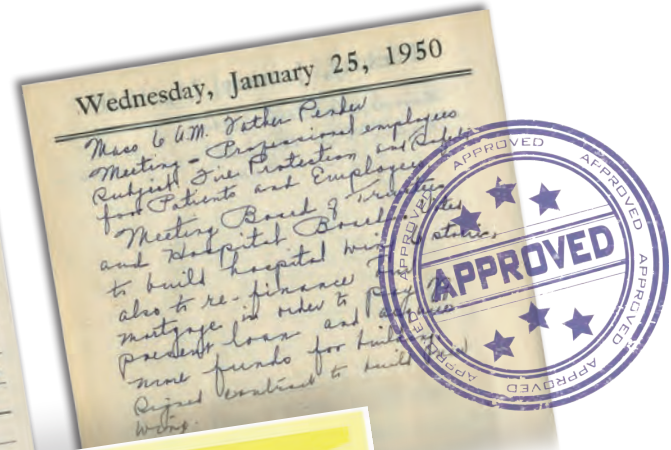 Wednesday, January 25, 1950
Mass 6 A.M. Father
Meeting - Professional employees
Subject Fire Protection and
for Patients and Employees
Meeting Board of Trustees
and Hospital Board
to build hospital wing
also to re-finance
mortgage in order to
present loan and
more funds for building
Signed contract to build
wing.
APPROVED
APPROVED
APPROVED
APPROVED
APPROVED
APPROVED
APPROVED
APPROVED